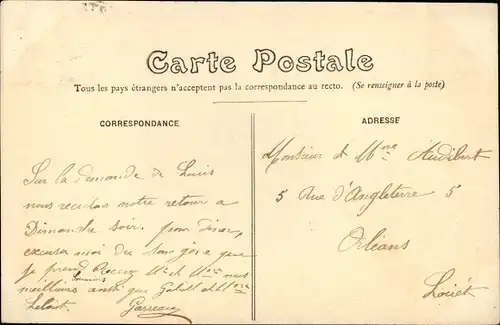 Carte Postale
Tous les pays étrangers n'acceptent pas la correspondance au recto. (Se renseigner à la poste)
CORRESPONDANCE
Sur la demande de Louis
nous reculons notre retour a
Dimanche soir. pour diner,
excuser moi du sans gêne que
je prend Recevez Mr et Mme nos
meilleurs souvenirs ainsi que
ADRESSE
Monsieur et Mme Audibert
5 Rue d'Angleterre 5
Orléans
Loiret